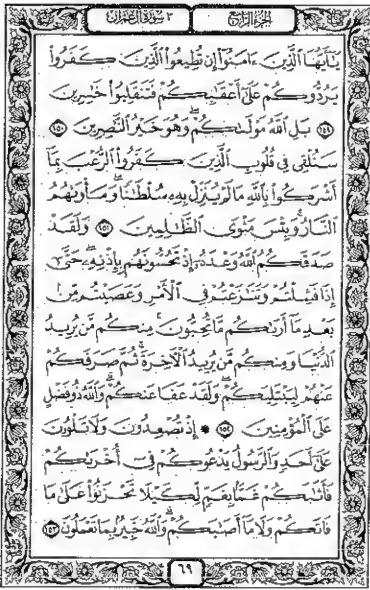 الجزء الرابع
٣ سورة آل عمران
يَٰٓأَيُّهَا ٱلَّذِينَ ءَامَنُوٓا۟ إِن تُطِيعُوا۟ ٱلَّذِينَ كَفَرُوا۟
يَرُدُّوكُمْ عَلَىٰٓ أَعْقَٰبِكُمْ فَتَنقَلِبُوا۟ خَٰسِرِينَ
١٤٩ بَلِ ٱللَّهُ مَوْلَىٰكُمْ ۖ وَهُوَ خَيْرُ ٱلنَّٰصِرِينَ ١٥٠
سَنُلْقِى فِى قُلُوبِ ٱلَّذِينَ كَفَرُوا۟ ٱلرُّعْبَ بِمَآ
أَشْرَكُوا۟ بِٱللَّهِ مَا لَمْ يُنَزِّلْ بِهِۦ سُلْطَٰنًا ۖ وَمَأْوَىٰهُمُ
ٱلنَّارُ ۚ وَبِئْسَ مَثْوَى ٱلظَّٰلِمِينَ ١٥١ وَلَقَدْ
صَدَقَكُمُ ٱللَّهُ وَعْدَهُۥٓ إِذْ تَحُسُّونَهُم بِإِذْنِهِۦ ۖ حَتَّىٰٓ
إِذَا فَشِلْتُمْ وَتَنَٰزَعْتُمْ فِى ٱلْأَمْرِ وَعَصَيْتُم مِّنۢ
بَعْدِ مَآ أَرَىٰكُم مَّا تُحِبُّونَ ۚ مِنكُم مَّن يُرِيدُ
ٱلدُّنْيَا وَمِنكُم مَّن يُرِيدُ ٱلْءَاخِرَةَ ۚ ثُمَّ صَرَفَكُمْ
عَنْهُمْ لِيَبْتَلِيَكُمْ ۖ وَلَقَدْ عَفَا عَنكُمْ ۗ وَٱللَّهُ ذُو فَضْلٍ
عَلَى ٱلْمُؤْمِنِينَ ١٥٢ ۞ إِذْ تُصْعِدُونَ وَلَا تَلْوُۥنَ
عَلَىٰٓ أَحَدٍ وَٱلرَّسُولُ يَدْعُوكُمْ فِىٓ أُخْرَىٰكُمْ
فَأَثَٰبَكُمْ غَمًّۢا بِغَمٍّ لِّكَيْلَا تَحْزَنُوا۟ عَلَىٰ مَا
فَاتَكُمْ وَلَا مَآ أَصَٰبَكُمْ ۗ وَٱللَّهُ خَبِيرٌۢ بِمَا تَعْمَلُونَ ١٥٣
٦٩